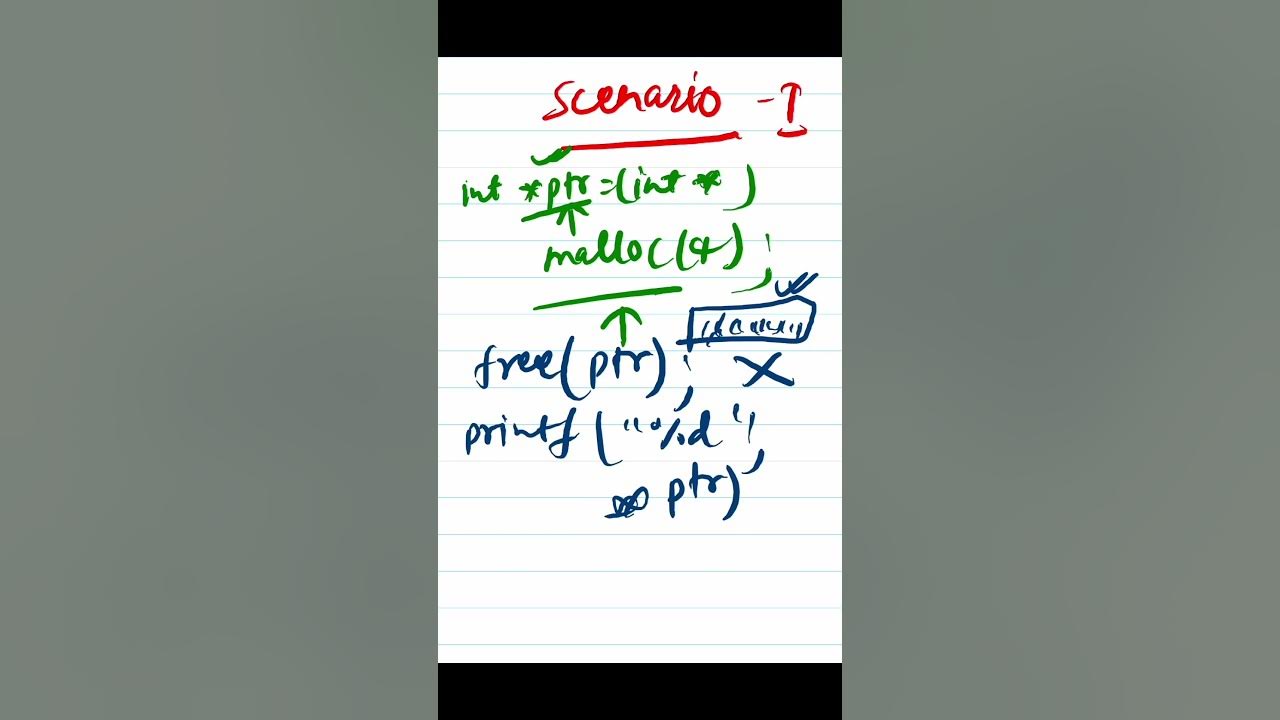 scenario - I
int *ptr = (int * )
malloc(4) ;
free(ptr) ;
printf ( "%d",
ptr)